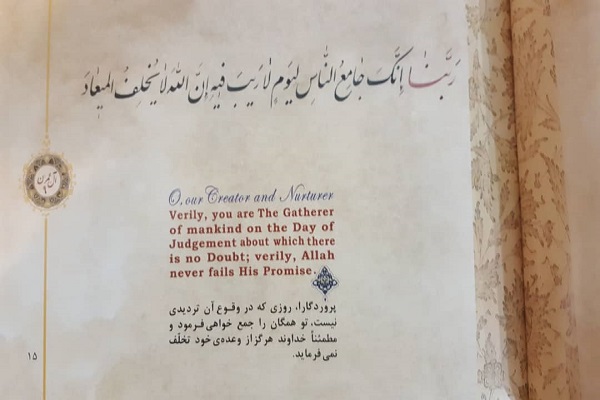 رَبَّنٰا إِنَّكَ جٰامِعُ النّٰاسِ لِيَومٍ لٰا رَيبَ فيهِ إِنَّ اللّٰهَ لٰا يُخلِفُ الميعٰادَ
آل عمران
٩
O, our Creator and Nurturer
Verily, you are The Gatherer
of mankind on the Day of
Judgement about which there
is no Doubt; verily, Allah
never fails His Promise.
پروردگارا، روزی که در وقوع آن تردیدی
نیست، تو همگان را جمع خواهی فرمود و
مطمئناً خداوند هرگز از وعده‌ی خود تخلّف
نمی‌فرماید.
۱۵